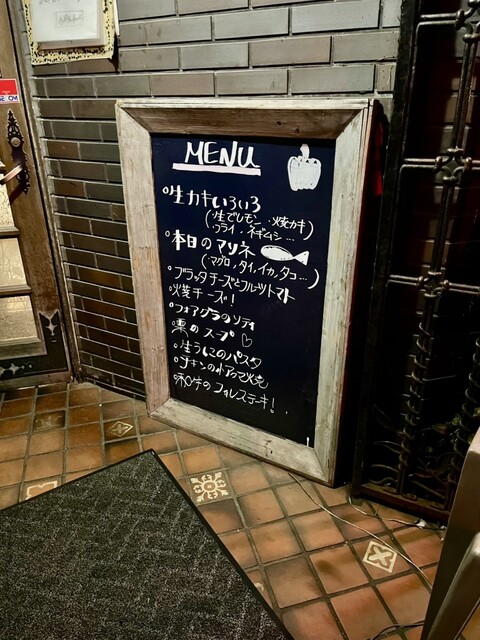 MENU
生カキいろいろ
(・生でレモン・焼カキ)
フライ、ネギムシ...
本日のマリネ
(・マグロ,タイ,イカ,タコ...)
ブラッタチーズとフルーツトマト
チーズ!
フォアグラのソテー
栗のスープ♡
生うにのパスタ
チキンの
和牛のフィレステーキ!